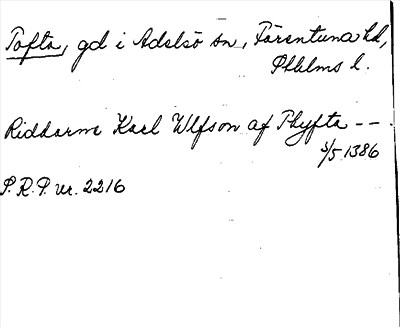 Tofta, gd i Adelsö sn, Färentuna hd,
Sthlms l.
Riddarne Karl Ulfson af Thyfta -- .
3/5 1386
S.R.P. nr. 2216